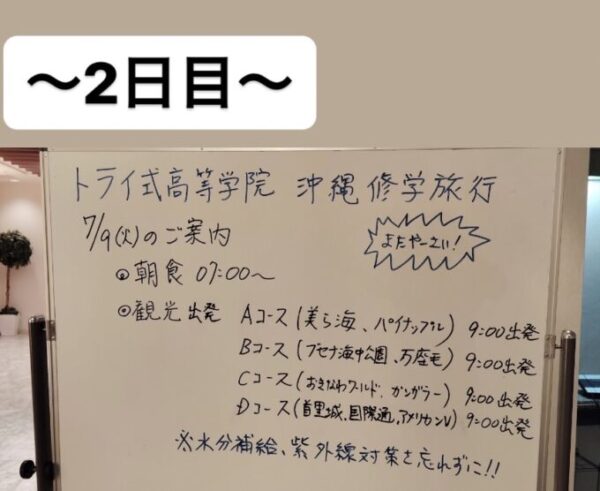 〜2日目〜
トライ式高等学院 沖縄 修学旅行
7/9(火)のご案内
よたやーさい!
◎朝食 07:00〜
◎観光出発 Aコース(美ら海、パイナップル) 9:00出発
Bコース(ブセナ海中公園、万座毛) 9:00出発
Cコース(おきなわワールド、ガンガラー) 9:00出発
Dコース(首里城、国際通、アメリカンV) 9:00出発
※水分補給、紫外線対策を忘れずに!!